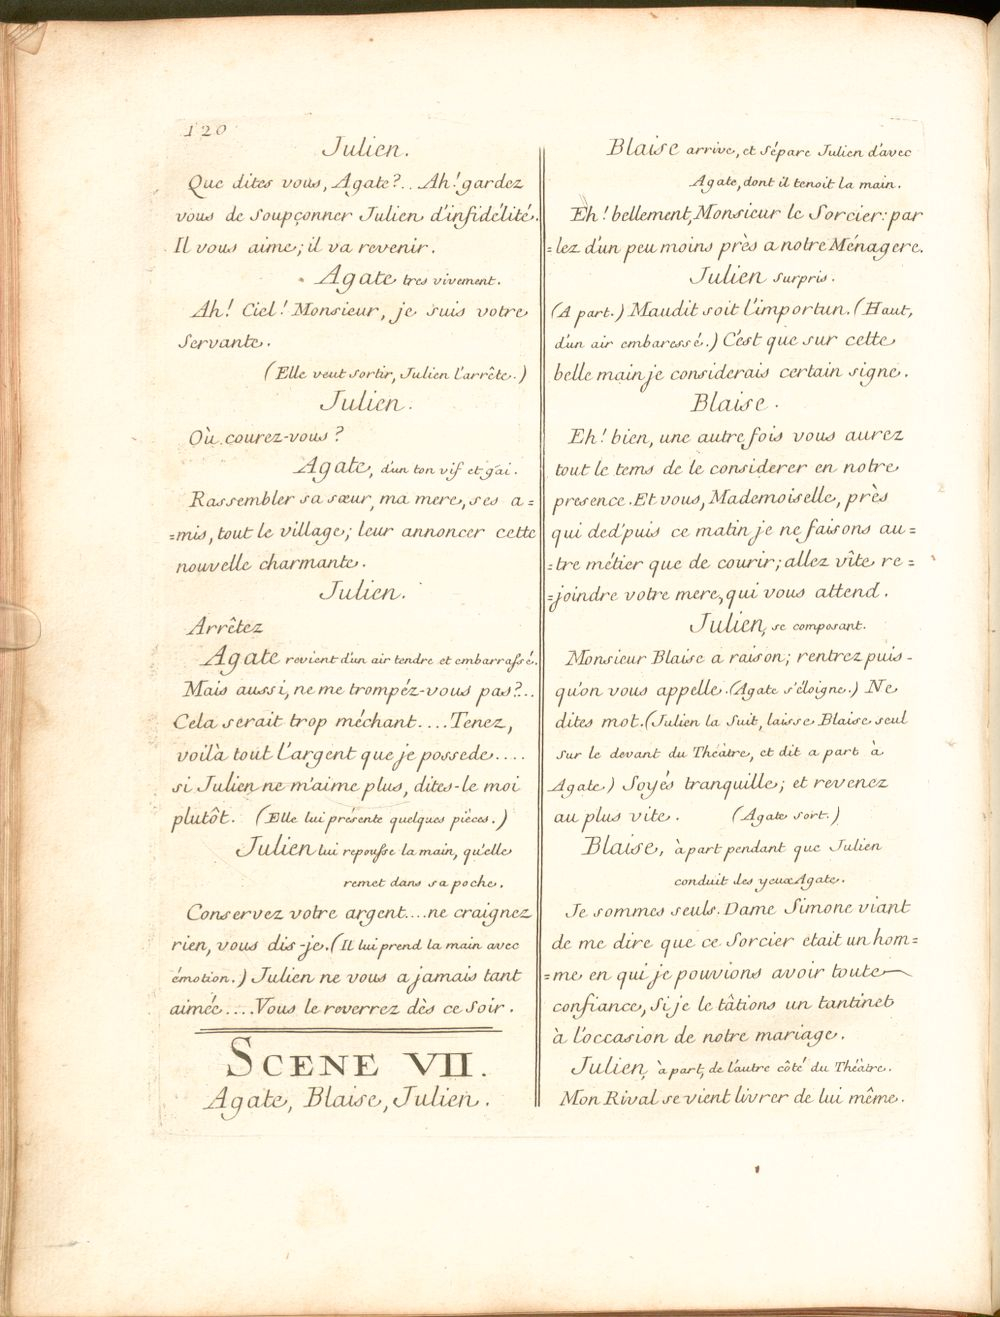 120
Julien.
Que dites vous, Agate?.. Ah! gardez
vous de soupçonner Julien d'infidélité.
Il vous aime; il va revenir.
Agate tres vivement.
Ah! Ciel! Monsieur, je suis votre
servante.
(Elle veut sortir, Julien l'arrête.)
Julien.
Où courez-vous?
Agate, d'un ton vif et gai.
Rassembler sa sœur, ma mere, ses a=
=mis, tout le village; leur annoncer cette
nouvelle charmante.
Julien.
Arrêtez
Agate revient d'un air tendre et embarrassé.
Mais aussi, ne me trompéz-vous pas?..
Cela serait trop méchant....Tenez,
voilà tout l'argent que je possede....
si Julien ne m'aime plus, dites-le moi
plutôt. (Elle lui présente quelques pièces.)
Julien lui repousse la main, qu'elle
remet dans sa poche.
Conservez votre argent....ne craignez
rien, vous dis-je. (Il lui prend la main avec
émotion.) Julien ne vous a jamais tant
aimée....Vous le reverrez dès ce soir.
SCENE VII.
Agate, Blaise, Julien.
Blaise arrive, et sépare Julien d'avec
Agate, dont il tenoit la main.
Eh! bellement, Monsieur le Sorcier: par
=lez d'un peu moins près a notre Ménagere.
Julien surpris.
(A part.) Maudit soit l'importun. (Haut,
d'un air embaressé.) C'est que sur cette
belle main je considerais certain signe.
Blaise.
Eh! bien, une autre fois vous aurez
tout le tems de le considerer en notre
presence. Et vous, Mademoiselle, près
qui ded'puis ce matin je ne faisons au=
=tre métier que de courir; allez vîte re=
=joindre votre mere, qui vous attend.
Julien, se composant.
Monsieur Blaise a raison; rentrez puis-
qu'on vous appelle. (Agate s'éloigne.) Ne
dites mot. (Julien la suit, laisse Blaise seul
sur le devant du Théâtre, et dit a part à
Agate) Soyés tranquille; et revenez
au plus vite. (Agate sort.)
Blaise, à part pendant que Julien
conduit des yeux Agate.
Je sommes seuls. Dame Simone viant
de me dire que ce Sorcier était un hom=
=me en qui je pouvions avoir toute
confiance, Si je le tâtions un tantinet
à l'occasion de notre mariage.
Julien, à part, de l'autre côté du Théâtre.
Mon Rival se vient livrer de lui même.